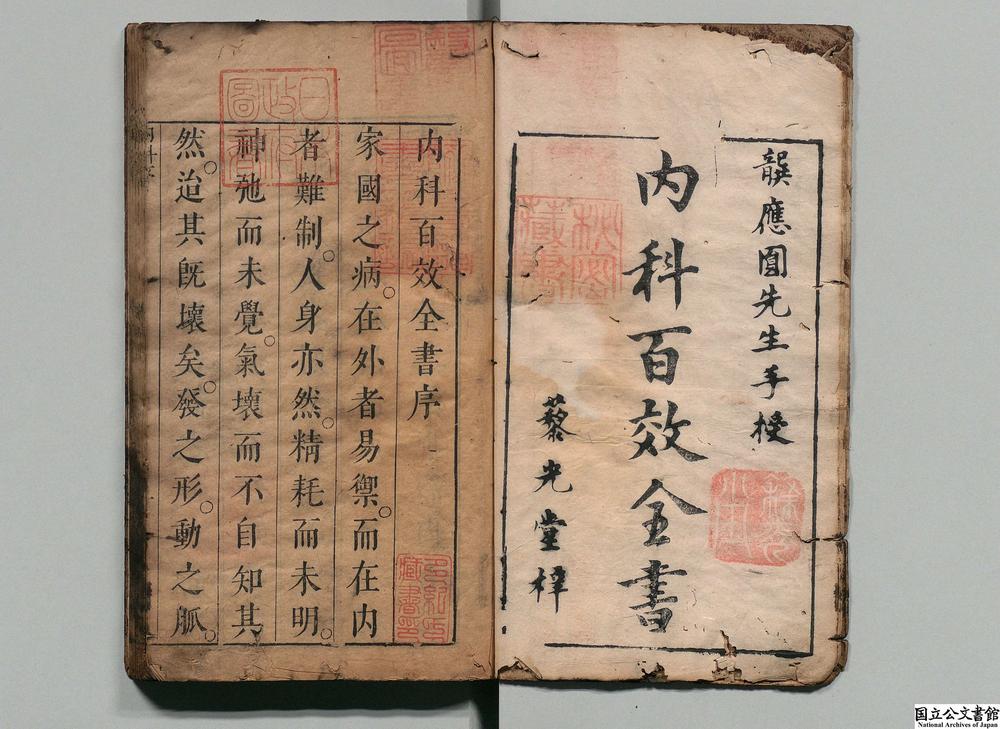 龔應圓先生手授
内科百效全書
藜光堂梓
内科百效全書序
家國之病。在外者易禦。而在内
者難制。人身亦然。精耗而未明。
神弛而未覺。氣壞而不自知其
然。迨其旣壞矣。發之形。動之脈。
日本
政府
圖書
国立公文書館
National Archives of Japan